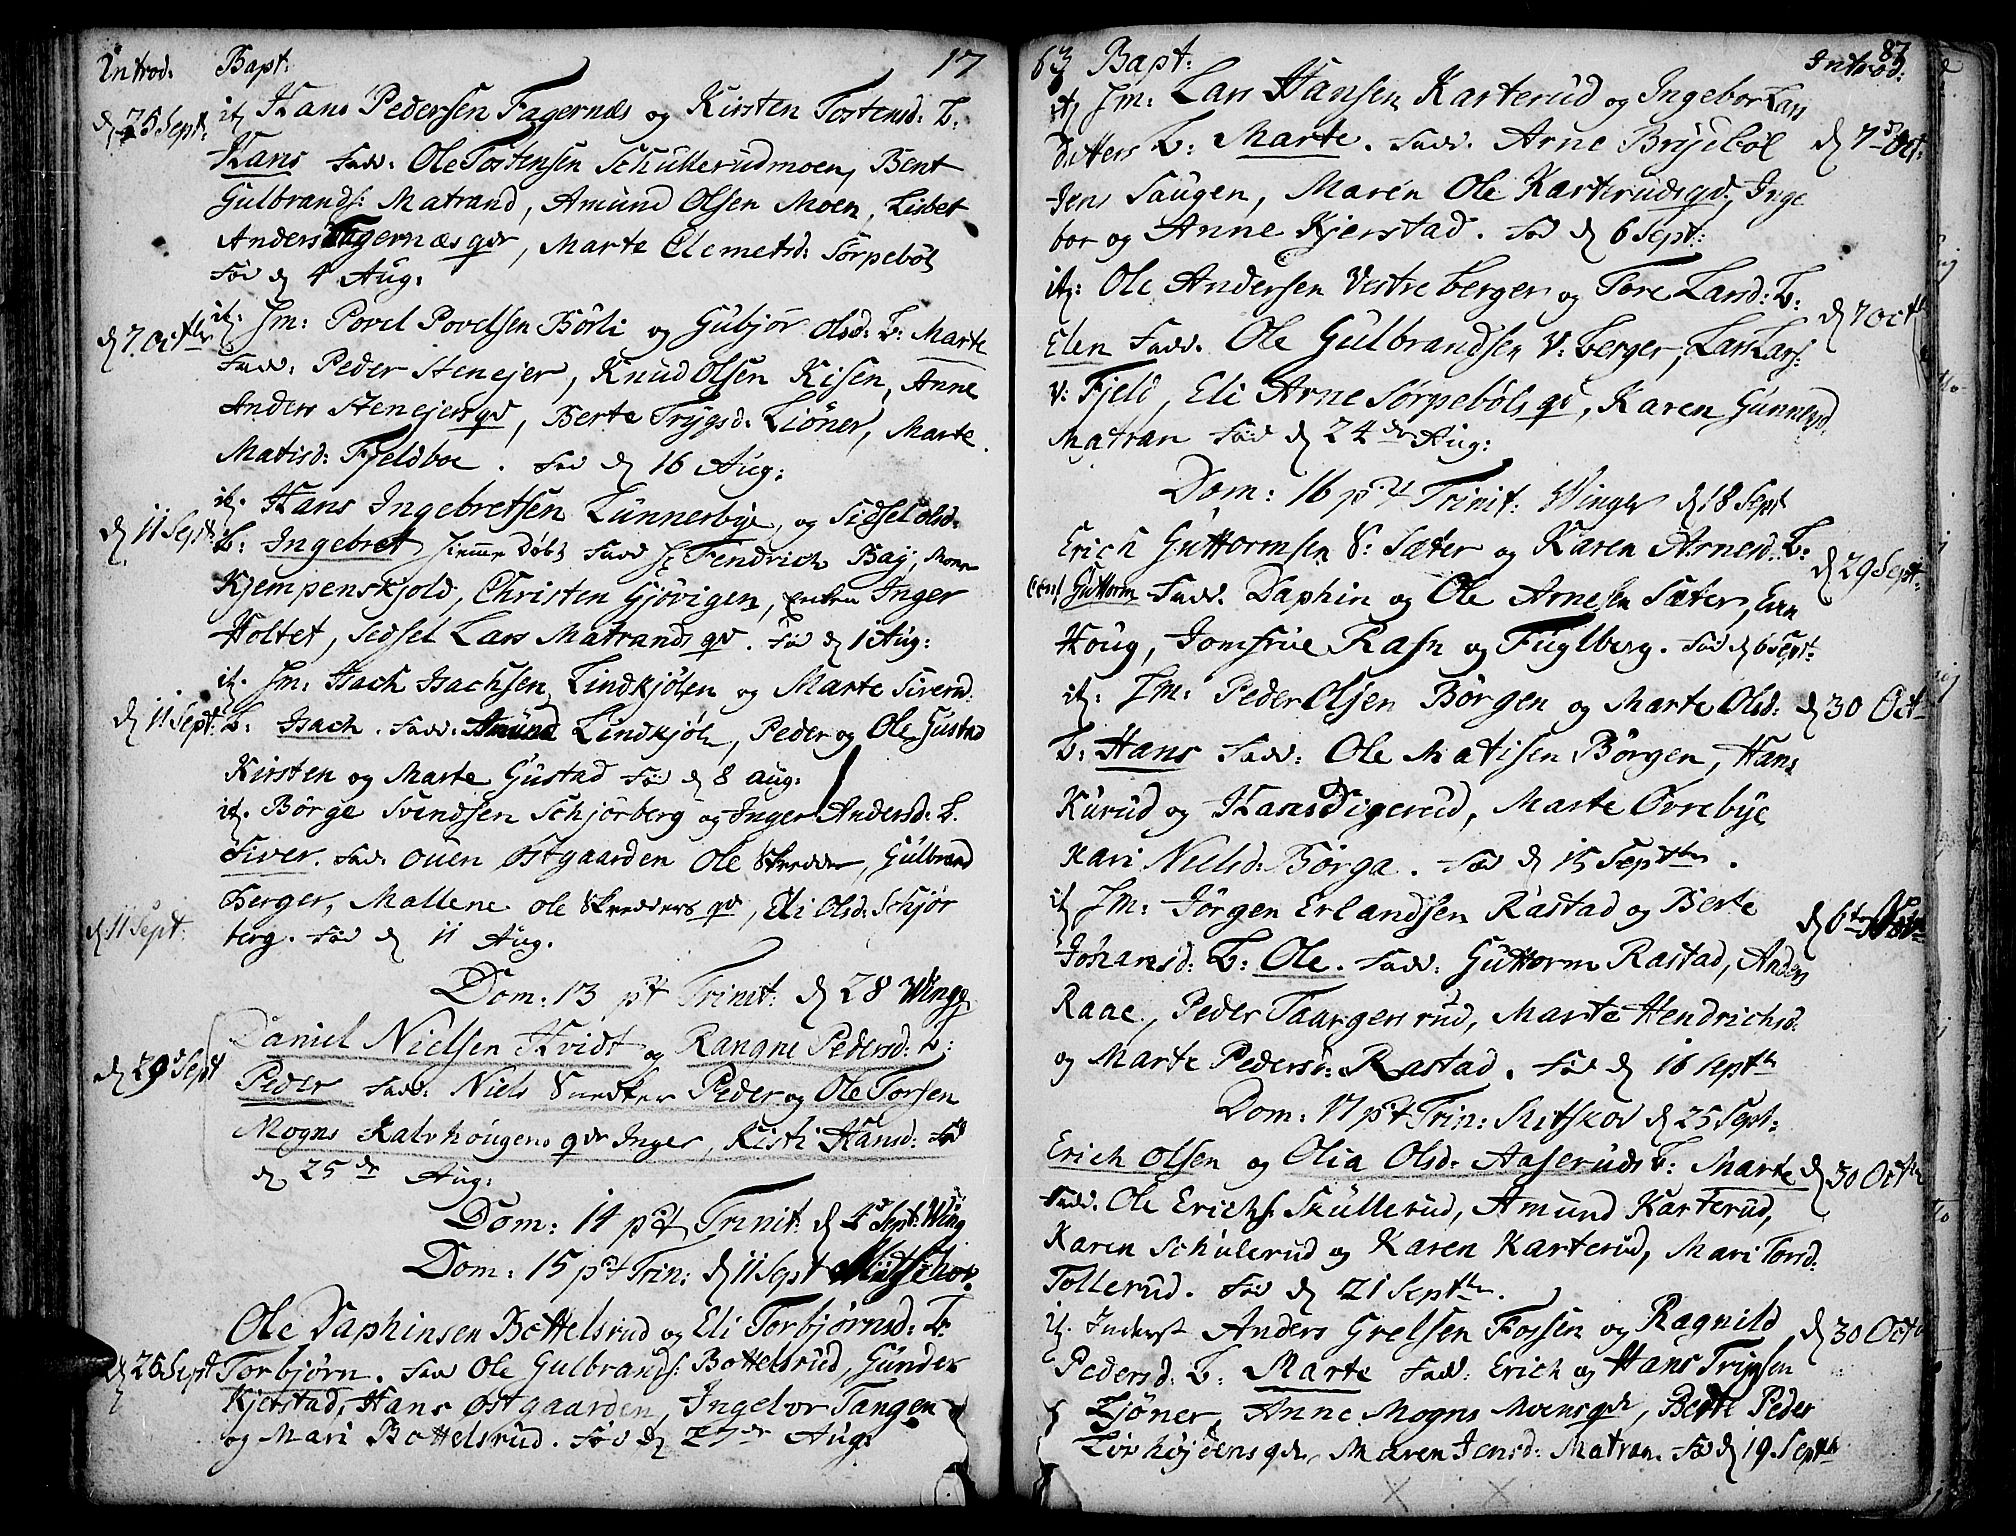 Introd. Bapt: 17
d 25 Sept: it Hans Pedersen Fagernæs og Kirsten Tostensd: B:
Hans Fadd: Ole Tostensen Schullerudmoen, Bent
Gulbrands: Matrand, Amund Olsen Moen, Lisbet
Anders Fagernæs qdr, Marte Clemetsd: Sørpebøl
Fød d 4 Aug:
d 7 Octbr it. Jm: Povel Povelsen Børli og Gubjør Olsd: B: Marte
Fadd: Peder Stenejer, Knud Olsen Kisen, Anne
Anders Stenejers qd, Berte Trygsd: Liøner, Marte
Matisd: Fjeldboe. Fød d 16 Aug:
d 11 Sept it. Hans Ingebretsen Lunnerbye, og Sidsel Olsd:
B: Ingebret hjemme Døbt Fadd Hr Fendrich Baÿ, Mons:
Kjempenskjold, Christen Gjøvigen, Inger
Holtet, Sidsel Lars Matrands qd. Fød d 1 Aug:
it. Jm: Isach Isachsen Lindkjølen og Marte Siversd.
d 11 Sept: B: Isach. Fadd: Amund Lindkjøln, Peder og Ole Gustad
Kirsten og Marte Gustad Fød d 8 aug:
it. Børge Svendsen Schjørberg og Inger Andersd: B.
Siver. Fad: Ouen Østgaarden Ole Skredder, Gulbrand
d 11 Sept: Berger, Mallene Ole Skredders qd, Eli Olsd: Schjør
berg. Fød d 11 Aug.
Dom: 13 pt Trinit: d 28 Winge
Daniel Nielsen Hvidt og Rangne Pedersd: B:
d 29 Sept Peder Fadd: Niels Snedker Peder og Ole Torsen
Mogns Kalvhougens qdr Inger, Kisti Hansd: Fød
d 25de Aug:
Dom: 14 pt Trinit: d 4 Sept: Wing
Dom: 15 pt Trin: d 11 Sept Mitschov.
Ole Daphinsen Bottelsrud og Eli Torbjørnsd: B.
d 26 Sept Torbjørn. Fad Ole Gulbrands: Bottelsrud, Gunder
Kjerstad, Hans Østgaarden, Ingebor Tangen
og Mari Bottelsrud. Fød d 27de Aug:
63 Bapt: Introd: 87
it Jm: Lars Hansen Karterud og Ingebor Lars
Datters B: Marte. Fadd. Arne Brÿebøl d 7 Oct:
Jens Haugen, Maren Ole Karteruds qd, Inge
bor og Anne Kjerstad. Fød d 6 Sept:
it: Ole Andersen Vestre berger og Tore Larsd: B: d 7 Oct
Elen Fadd. Ole Gulbrandsen V: berger, Lars Lars:
V: Fjeld, Eli Arne Sørpebøls qd, Karen Gunnersd.
Matran Fød d 24de Aug:
Dom: 16 pt Trinit: Winger d 18 Sept
Erich Guttormsen S: Sæter og Karen Arnesd. B: d 29 Sept:
Guttorm Fadd. Daphin og Ole Arnesen Sæter, Even
Houg, Jomfrue Rasn og Fuglberg. Fød d 6 Sept:
it. Jm: Peder Olsen Børgen og Marte Olsd: d 30 Oct
B: Hans Fadd: Ole Matisen Børgen, Hans
Kurud og Hans Digerud, Marte Ovrebye
Kari Nielsd: Børga. Fød d 15 Septbr.
it Jm: Jørgen Erlandsen Rastad og Berte d 6te
Johansd: B: Ole. Fadd: Guttorm Rastad, Anders
Raae, Peder Taargersrud, Marte Hendrichsd:
og Marte Pedersd: Rastad. Fød d 16 Septb
Dom: 17 pt Trin: Mitskov d 25 Sept:
Erich Olsen og Olia Olsd: Aaseruds B: Marte d 30 Oct
Fadd. Ole Erichs: Skullerud, Amund Karterud,
Karen Schulerud og Karen Karterud, Mari Torsd:
Tollerud. Fød d 21 Septb.
it. Inderst Anders Grelsen Fossen og Ragnild d 30 Oct
Pedersd: B: Marte Fadd: Erich og Hans Trulsen
Ljøner, Anne Mogns Moens qdr, Berte Peder
Løvhøjdens qdr, Maren Jensd: Matran. Fød d 19 Septb